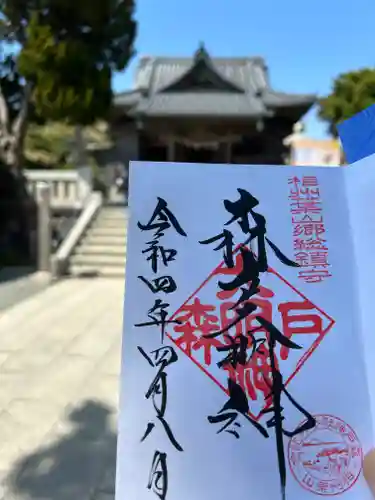 相州葉山郷総鎮守
森戸大明神
令和四年四月八日
森戸